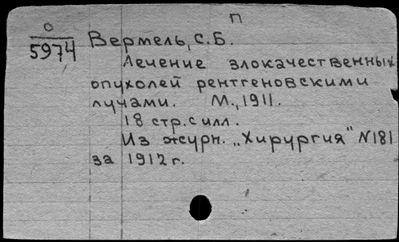 П
О
5974
Вермель, С.Б.
Лечение злокачественных
опухолей рентгеновскими
лучами. М., 1911.
18 стр. с илл.
Из журн. „Хирургия" №181
за 1912 г.